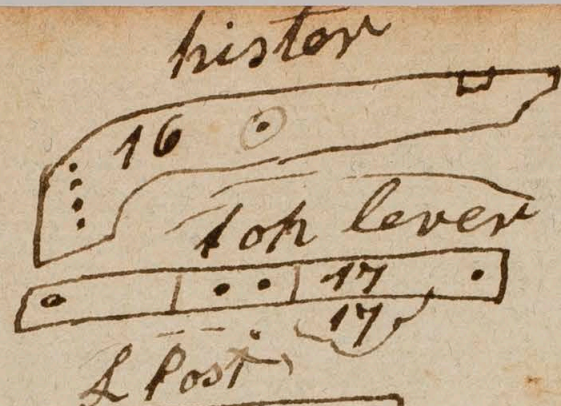 hister
16
top lever
17
17
L Post